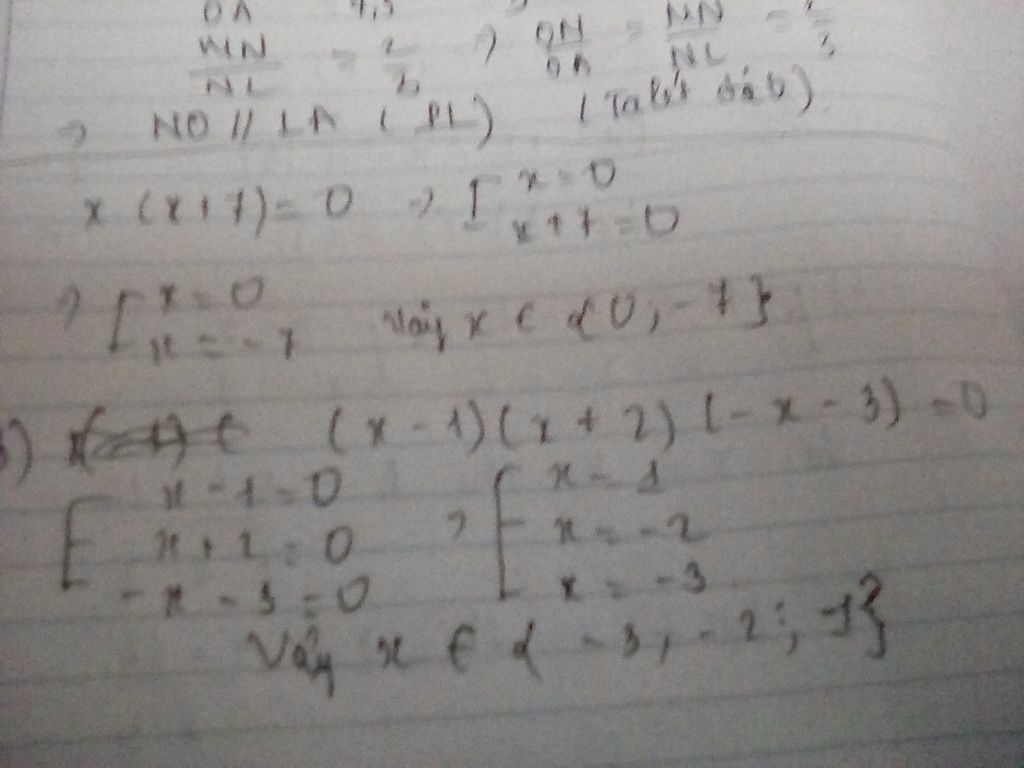 OA
MN/NL = 2/3 => ON/OA = MN/NL = 2/3
=> NO // LA ( PL) (Talét đảo)
x (x+7) = 0 => [ x = 0
x+7 = 0
=> [ x = 0
x = -7 Vậy x ∈ {0; -7}
(x - 1)(x + 2)(-x - 3) = 0
[ x - 1 = 0 => [ x = 1
x + 2 = 0 x = -2
-x - 3 = 0 x = -3
Vậy x ∈ { -3; -2; 1}